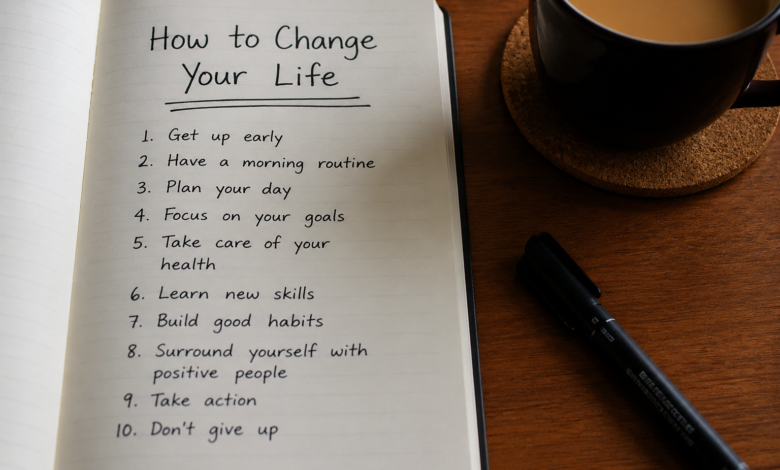 How to Change
Your Life
1. Get up early
2. Have a morning routine
3. Plan your day
4. Focus on your goals
5. Take care of your
health
6. Learn new skills
7. Build good habits
8. Surround yourself with
positive people
9. Take action
10. Don't give up